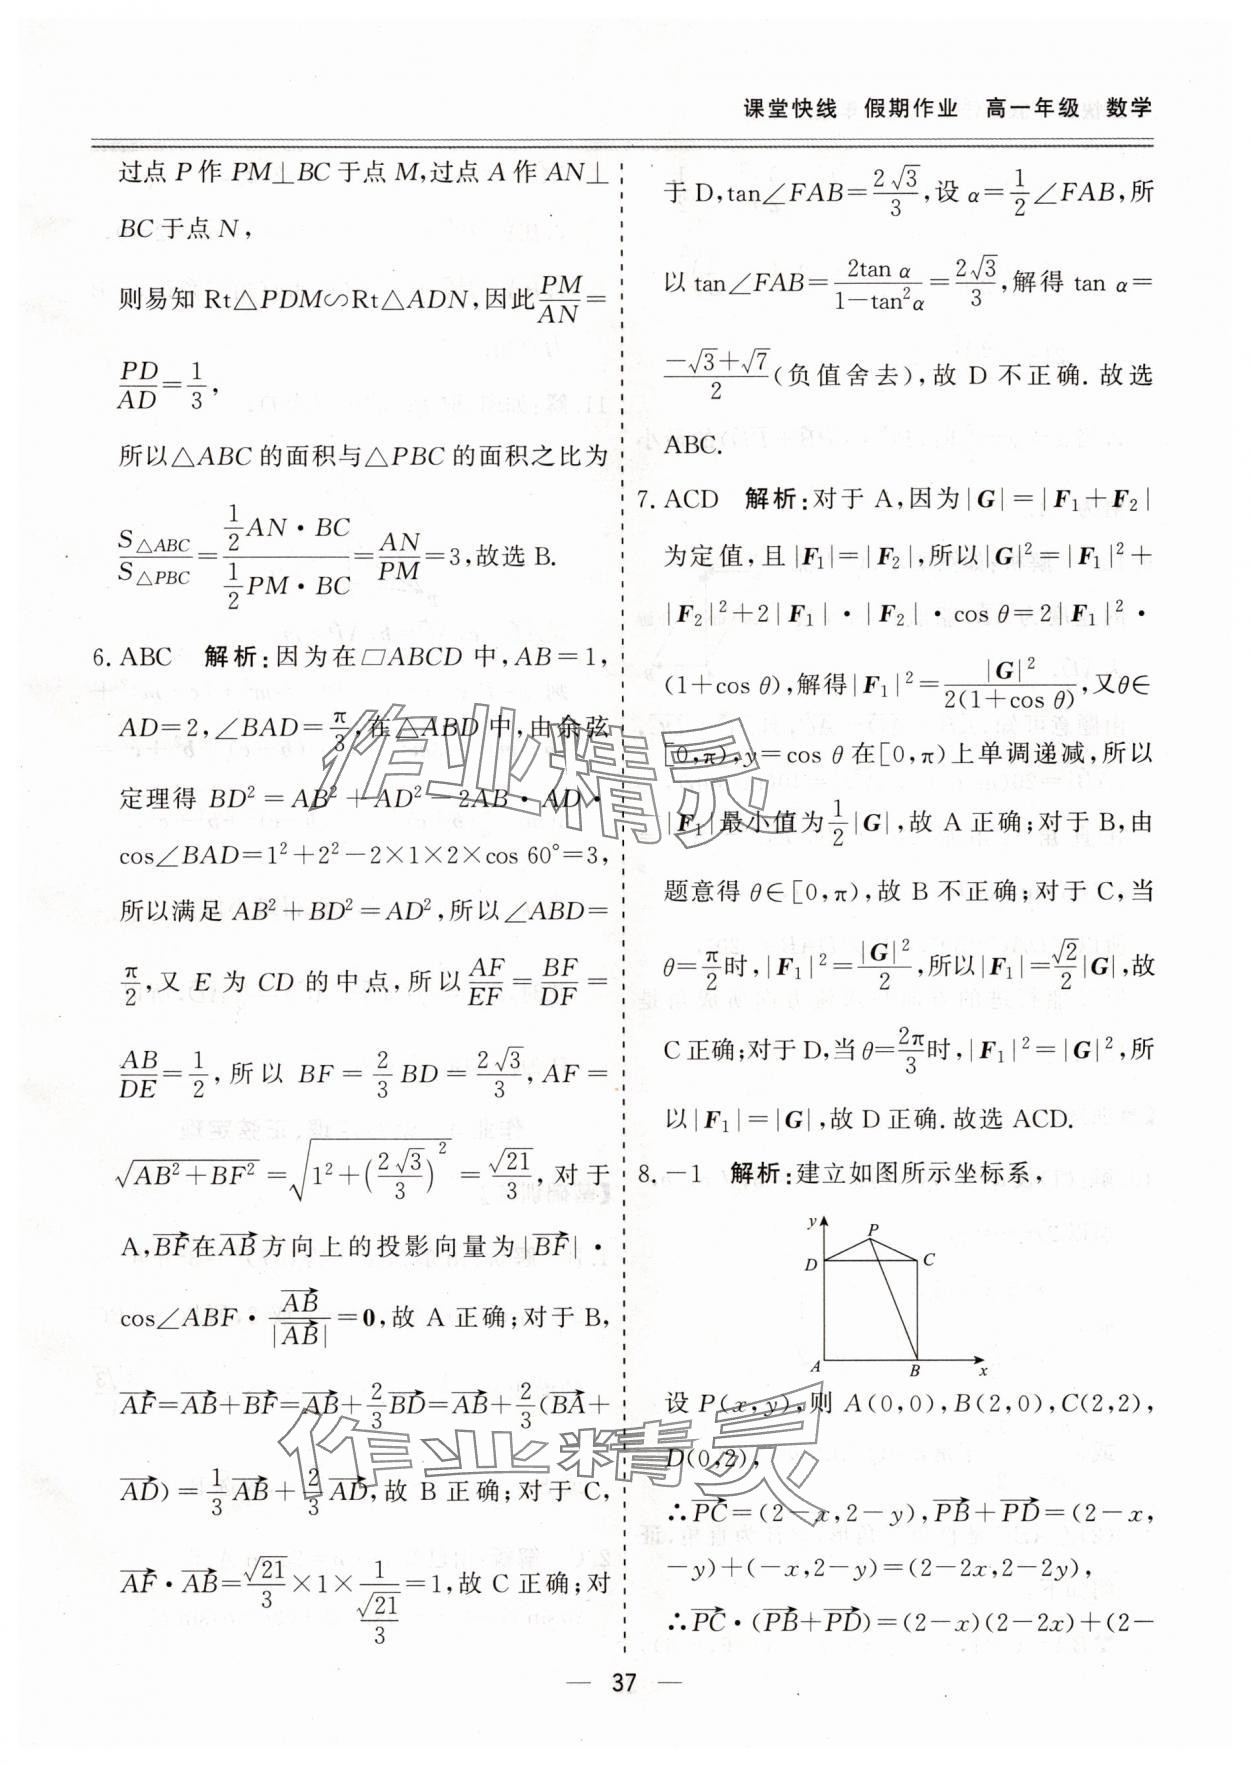 课堂快线 假期作业 高一年级 数学
过点 P 作 PM⊥BC 于点 M,过点 A 作 AN⊥
BC 于点 N,
则易知 Rt△PDM∽Rt△ADN,因此 PM/AN=
PD/AD=1/3,
所以△ABC 的面积与△PBC 的面积之比为
S△ABC/S△PBC=(1/2 AN·BC)/(1/2 PM·BC)=AN/PM=3,故选 B.
6. ABC 解析:因为在▱ABCD 中,AB=1,
AD=2,∠BAD=π/3,在△ABD 中,由余弦
定理得 BD²=AB²+AD²-2AB·AD·
cos∠BAD=1²+2²-2×1×2×cos 60°=3,
所以满足 AB²+BD²=AD²,所以∠ABD=
π/2,又 E 为 CD 的中点,所以 AF/EF=BF/DF=
AB/DE=1/2,所以 BF=2/3 BD=2√3/3,AF=
√(AB²+BF²)=√(1²+(2√3/3)²)=√21/3,对于
A,BF→在AB→方向上的投影向量为|BF→|·
cos∠ABF·AB→/|AB→|=0,故 A 正确;对于 B,
AF→=AB→+BF→=AB→+2/3 BD→=AB→+2/3(BA→+
AD→)=1/3 AB→+2/3 AD→,故 B 正确;对于 C,
AF→·AB→=√21/3×1×1/(√21/3)=1,故 C 正确;对
于 D,tan∠FAB=2√3/3,设 α=1/2∠FAB,所
以 tan∠FAB=2tan α/(1-tan²α)=2√3/3,解得 tan α=
(-√3+√7)/2(负值舍去),故 D 不正确.故选
ABC.
7. ACD 解析:对于 A,因为|G|=|F₁+F₂|
为定值,且|F₁|=|F₂|,所以|G|²=|F₁|²+
|F₂|²+2|F₁|·|F₂|·cos θ=2|F₁|²·
(1+cos θ),解得|F₁|²=|G|²/2(1+cos θ),又θ∈
[0,π),y=cos θ 在[0,π)上单调递减,所以
|F₁|最小值为1/2|G|,故 A 正确;对于 B,由
题意得 θ∈[0,π),故 B 不正确;对于 C,当
θ=π/2时,|F₁|²=|G|²/2,所以|F₁|=√2/2|G|,故
C 正确;对于 D,当 θ=2π/3时,|F₁|²=|G|²,所
以|F₁|=|G|,故 D 正确.故选 ACD.
8. -1 解析:建立如图所示坐标系,
y
P
D
C
A
B
x
设 P(x,y),则 A(0,0),B(2,0),C(2,2),
D(0,2),
∴PC→=(2-x,2-y),PB→+PD→=(2-x,
-y)+(-x,2-y)=(2-2x,2-2y),
∴PC→·(PB→+PD→)=(2-x)(2-2x)+(2-
— 37 —
作业精灵
作业精灵